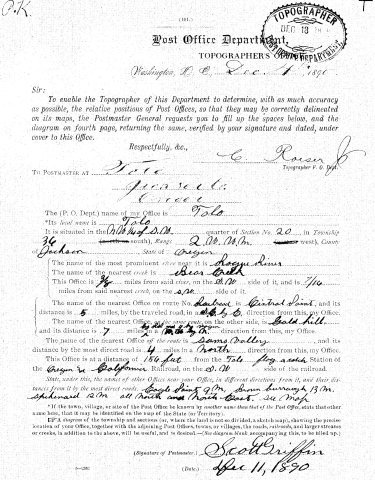 P.K.
(101.)
TOPOGRAPHER
DEC 13
POST OFFICE DEPARTMENT
Post Office Department,
TOPOGRAPHER'S OFFICE,
Washington, D. C., Dec 1 1890
Sir:
To enable the Topographer of this Department to determine, with as much accuracy
as possible, the relative positions of Post Offices, so that they may be correctly delineated
on its maps, the Postmaster General requests you to fill up the spaces below, and the
diagram on fourth page, returning the same, verified by your signature and dated, under
cover to this Office.
Respectfully, &c.,
C. Roeser Jr
Topographer P. O. Dept.
TO POSTMASTER AT Tolo
The (P. O. Dept.) name of my Office is Tolo
*Its local name is Tolo
It is situated in the quarter of Section No. 20, in Township
36 (south), Range 2 W. W.M. (west), County
of Jackson, State of Oregon
The name of the most prominent river near it is Rogue River
The name of the nearest creek is Bear Creek
This Office is miles from said river, on the side of it, and 7/10
miles from said nearest creek, on the S.W. side of it.
The name of the nearest Office on route No. Railroad is Central Point, and its
distance is 5 miles, by the traveled road, in a direction from this, my Office.
The name of the nearest Office, on the same route, on the other side, is Gold Hill,
and its distance is 7 miles in a direction from this, my Office.
The name of the nearest Office off the route is Sams Valley, and its
distance by the most direct road is miles in a North direction from this, my Office.
This Office is at a distance of from the Tolo flag Station of
the Oregon & California Railroad, on the S.W side of the railroad.
State, under this, the names of all other Offices near your Office, in different directions from it, and their distances
from it by the most direct roads. Eagle Point 9 M.
all North and North East. See Map
*If the town, village, or site of the Post Office be known by another name than that of the Post Office, state that other
name here, that it may be identified on the map of the State (or Territory)
A diagram of the township (or, where the land is not so divided, a sketch map), showing the precise
location of your Office, together with the adjoining Post Offices, towns, or villages, the roads, railroads, and larger streams
or creeks, in addition to the above, will be useful, and is desired.
(Signature of Postmaster.) Scott Griffin
(Date.) Dec 11, 1890